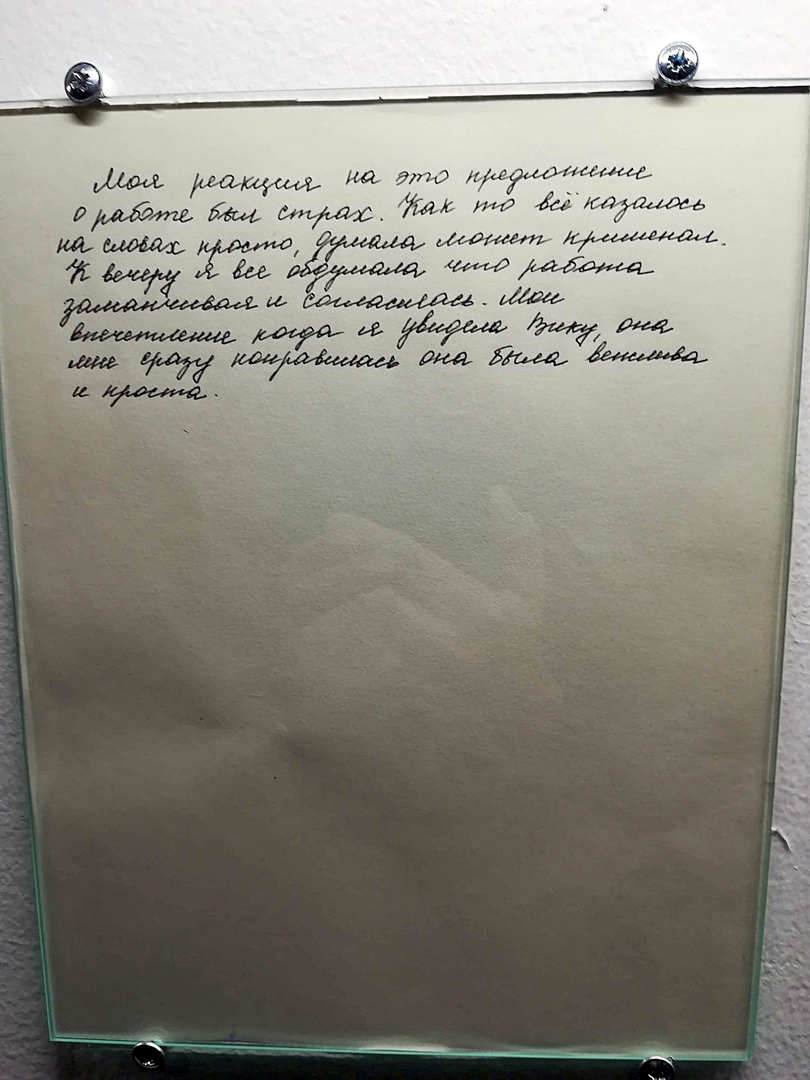 Моя реакция на это предложение
о работе был страх. Как то всё казалось
на словах просто, думала может крименал.
К вечеру я все обдумала что работа
заманчивая и согласилась. Мои
впечетление когда я увидела Вику, она
мне сразу понравилась она была вежлива
и проста.